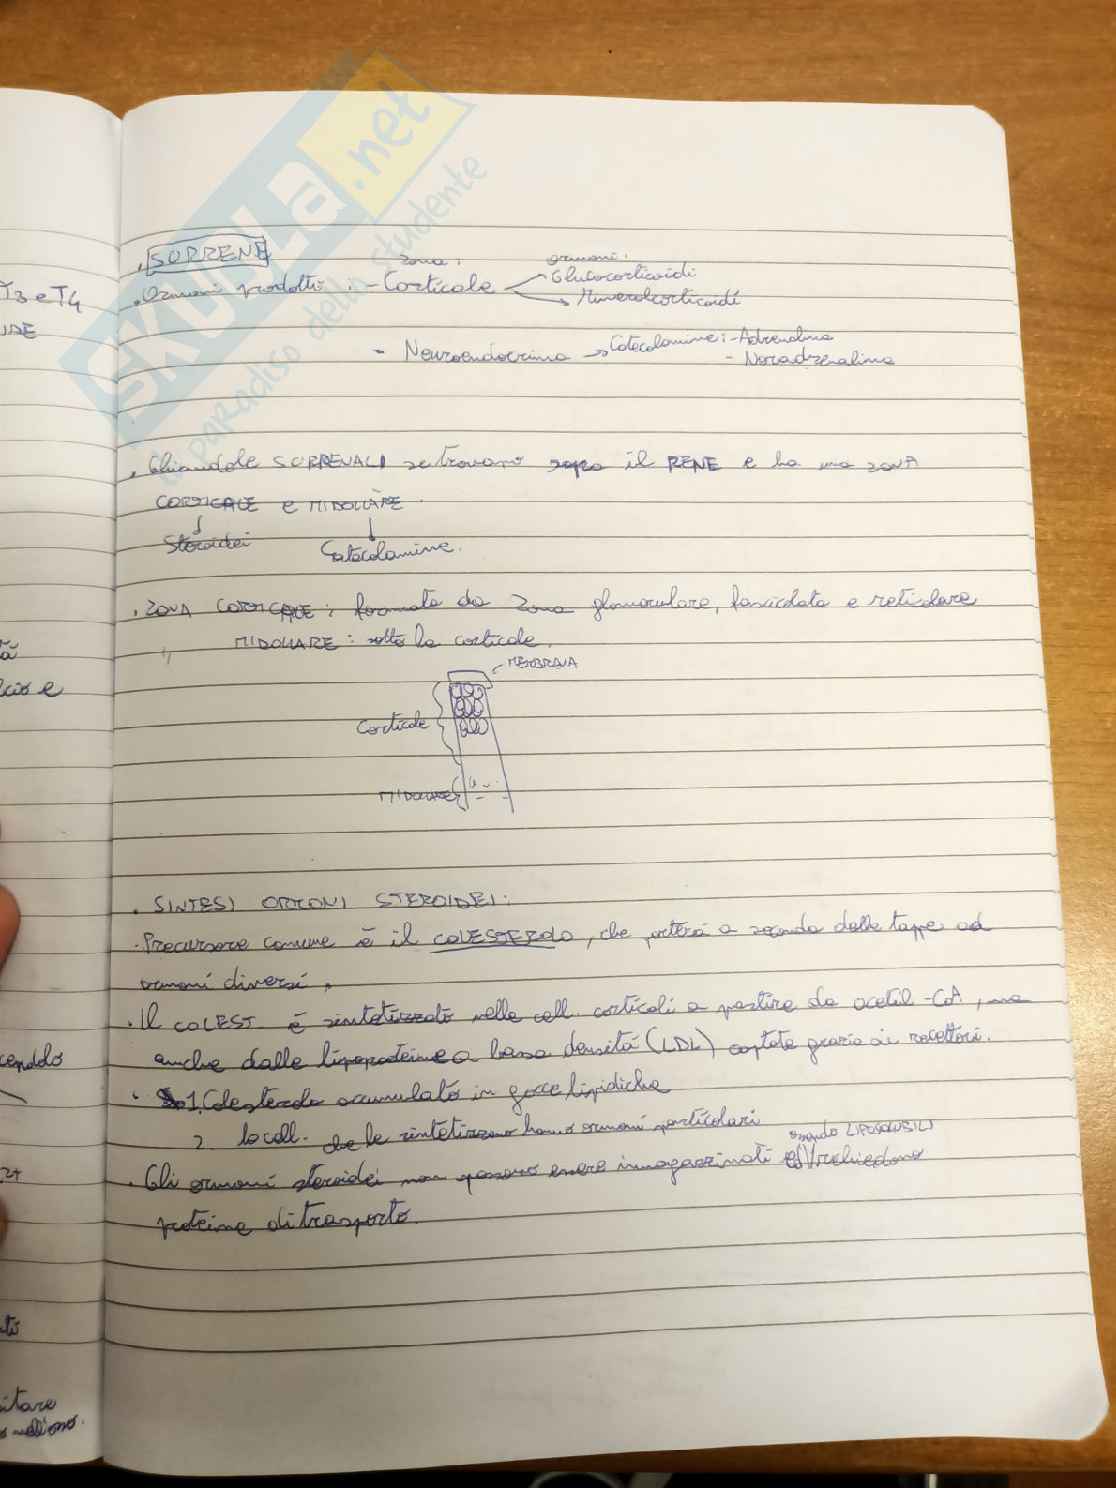 SKUOLA.net
il paradiso dello studente
T3 e T4
IDE
. SURRENE
zona: ormoni:
. Ormoni prodotti: - Corticale Glucocorticoidi
Mineralcorticoidi
- Neuroendocrina → Catecolamine: - Adrenalina
- Noradrenalina
. Ghiandole SURRENALI si trovano sopra il RENE e ha una ZONA
CORTICALE e MIDOLLARE.
↓ ↓
Steroidei Catecolamine.
. ZONA CORTICALE: formata da zona glomerulare, fascicolata e reticolare
" MIDOLLARE: sotto la corticale.
MEMBRANA
Corticale
MIDOLLARE
. SINTESI ORMONI STEROIDEI:
. Precursore comune è il COLESTEROLO, che porterà a seconda delle tappe ad
ormoni diversi.
. Il COLEST. è sintetizzato nelle cell. corticali a partire da acetil-CoA, ma
anche dalle lipoproteine a bassa densità (LDL) captate grazie ai recettori.
. 1. Colesterolo accumulato in gocce lipidiche
2. le cell. che le sintetizzano hanno ormoni particolari
essendo LIPOSOLUBILI
. Gli ormoni steroidei non possono essere immagazzinati e richiedono
proteine di trasporto.